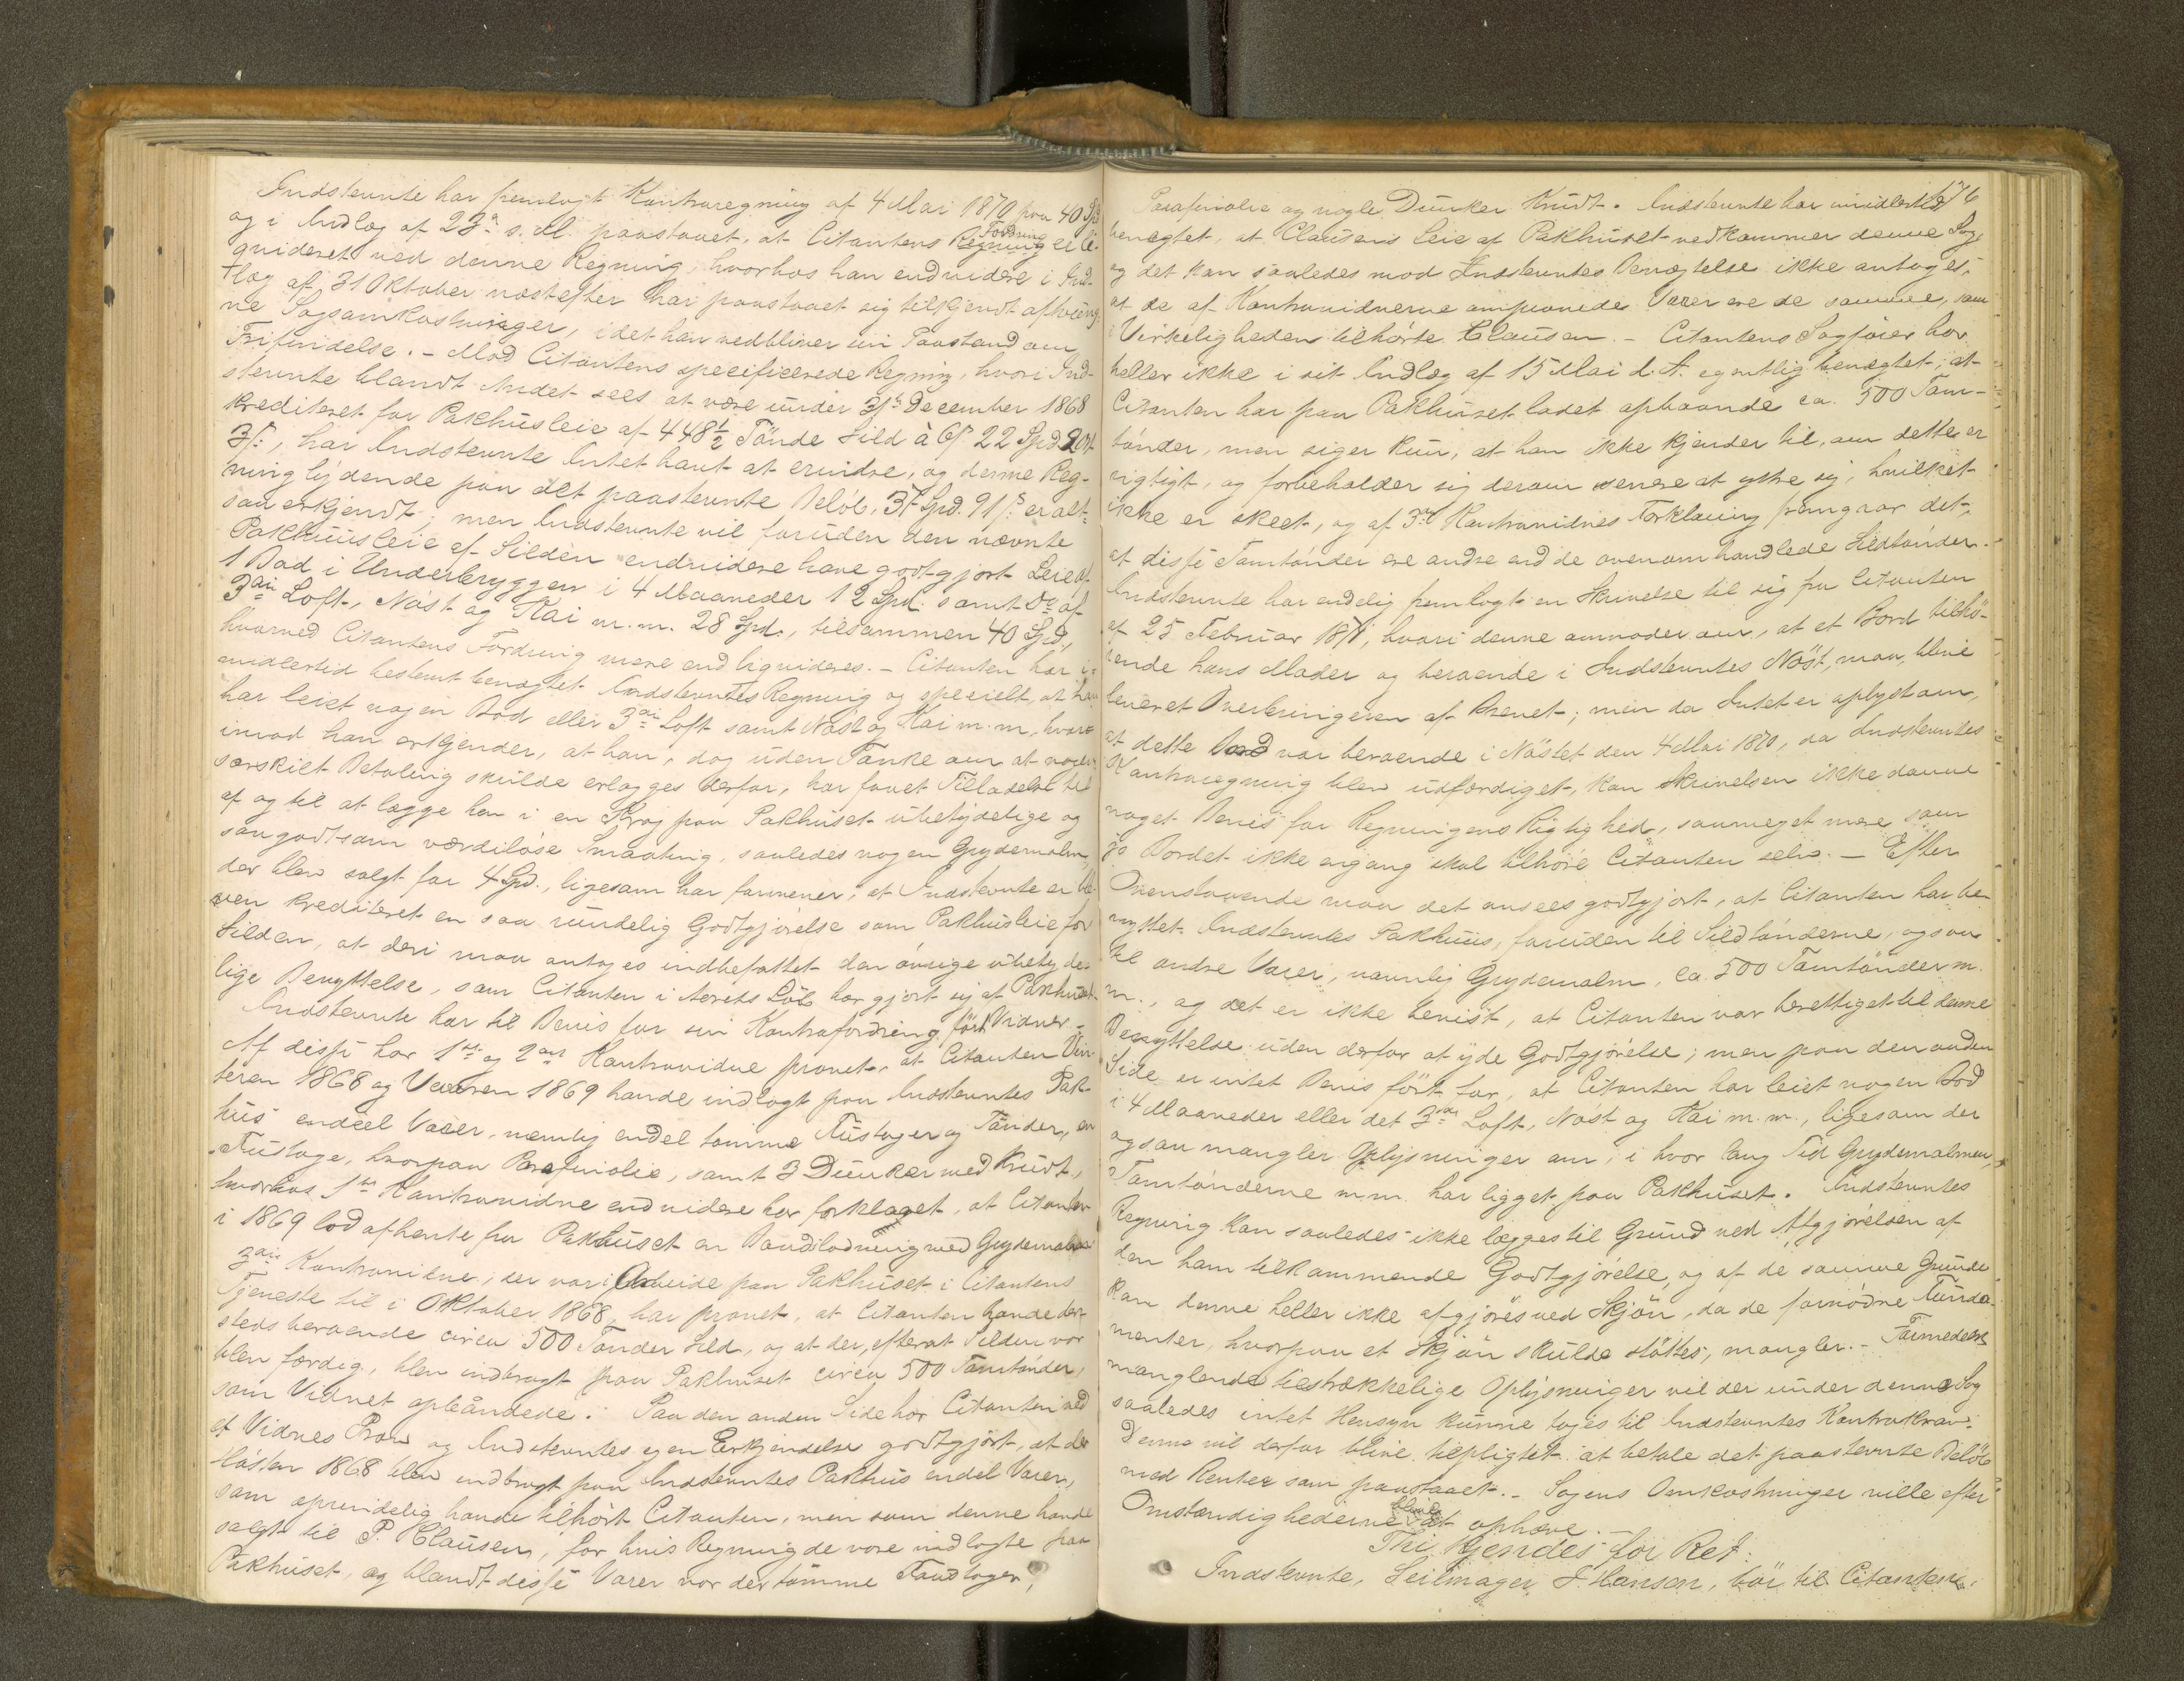 Indstevnte har fremlagt Kontraregning af 4 Mai 1870 paa 40 Spd
og i Indlæg af 23de s. M. paastaaet, at Citantens Fordring er li-
qvideret ved denne Regning, hvorhos han endvidere i Ind-
læg af 31 Oktober næstefter har paastaaet sig tilkjendt afhæng-
ne Sagsomkostninger, idet han vedbliver sin Paastand om
Frifindelse. – Mod Citantens specificerede Regning, hvori Ind-
stevnte blandt Andet sees at være under 31te December 1868
krediteret for Pakhusleie af 448½ Tönde Sild à 6s 22 Spd 2 Ort
3s:, har Indstevnte Intet havt at erindre, og denne Reg-
ning lydende paa det paastevnte Belöb, 37 Spd. 91s er alt-
saa erkjendt; men Indstevnte vil foruden den nævnte
Pakhusleie af Silden endvidere have godtgjort Leie af
1 Bod i Underbryggen i 4 Maaneder 12 Spd. samt Do af
3die Loft, Nöst og Kai m. m. 28 Spd., tilsammen 40 Spd,
hvorved Citantens Fordring mere end liqvideres. – Citanten har i-
midlertid bestemt benægtet Indstevntes Regning og specielt, at han
har leiet nogen Bod eller 3die Loft samt Nöst og Kai m. m., hvor-
imod han erkjender, at han, dog uden Tanke om at nogen
særskilt Betaling skulde erlægges derfor, har faaet Tilladelse til
af og til at lægge hen i en Krog paa Pakhuset ubetydelige og
saagodtsom værdilöse Smaating, saaledes nogen Grydemalm,
der blev solgt for 4 Spd., ligesom han formener, at Indstevnte er ble-
ven krediteret en saa rundelig Godtgjörelse som Pakhusleie for
Silden, at deri maa antages indbefattet den övrige ubetyde-
lige Benyttelse, som Citanten i Aarets Löb har gjort sig af Pakhuset.
Indstevnte har til Bevis for sin Kontrafordring fört Vidner.
Af disse har 1ste og 2det Kontravidne provet, at Citanten Vin-
teren 1868 og Vaaren 1869 havde indlagt paa Indstevntes Pak-
hus endeel Varer, nemlig endel tomme Fustager og Tönder, en
Fustage, hvorpaa Parafinolie, samt 3 Dunker med Krudt,
hvorhos 1ste Kontravidne endvidere har forklaret, at Citanten
i 1869 lod afhente fra Pakhuset en Baadladning med Grydemalm.
3die Kontravidne, der var i Arbeide paa Pakhuset i Citantens
Tjeneste til i Oktober 1868, har provet, at Citanten havde der-
steds beroende circa 500 Tönder Sild, og at der, efterat Silden var
bleven færdig, blev indbragt paa Pakhuset circa 500 Tomtönder,
som Vidnet opbaandede. Paa den anden Side har Citanten ved
et Vidnes Prov og Indstevntes egen Erkjendelse godtgjort, at der
Hösten 1868 blev indbragt paa Indstevntes Pakhus endel Varer,
som oprindelig havde tilhört Citanten, men som denne havde
solgt til P. Clausen, for hvis Regning de vare indlagte paa
Pakhuset, og blandt disse Varer var der tomme Fustager,
176
Parafinolie og nogle Dunker Krudt. Indstevnte har imidlertid
benægtet, at Clausens Leie af Pakhuset vedkommer denne Sag,
og det kan saaledes mod Indstevntes Benægtelse ikke antages,
at de af Kontravidnerne omprovede Varer ere de samme, som
i Virkeligheden tilhörte Clausen. – Citantens Sagförer har
heller ikke i sit Indlæg af 15 Mai d. A. egentlig benægtet, at
Citanten har paa Pakhuset ladet opbaande ca. 500 Tom-
tönder, men siger kun, at han ikke kjender til, om dette er
rigtigt, og forbeholder sig derom senere at yttre sig, hvilket
ikke er skeet, og af 3die Kontravidnes Forklaring fremgaar det,
at disse Tomtönder ere andre end de ovenomhandlede Sildtönder.
Indstevnte har endelig fremlagt en Skrivelse til sig fra Citanten
af 25 Februar 1871, hvori denne anmoder om, at et Bord tilhö-
rende hans Moder og beroende i Indstevntes Nöst, maa blive
leveret Overbringeren af Brevet; men da Intet er oplyst om,
at dette Bord var beroende i Nöstet den 4 Mai 1870, da Indstevntes
Kontraregning blev udfærdiget, kan Skrivelsen ikke danne
noget Bevis for Regningens Rigtighed, saameget mere som
jo Bordet ikke engang skal tilhöre Citanten selv. – Efter
Ovenstaaende maa det ansees godtgjort, at Citanten har be-
nyttet Indstevntes Pakhuus, foruden til Sildtönderne, ogsaa
til andre Varer, navnlig Grydemalm, ca. 500 Tomtönder m.
m., og det er ikke bevist, at Citanten var berettiget til denne
Benyttelse uden derfor at yde Godtgjörelse; men paa den anden
Side er intet Bevis fört for, at Citanten har leiet nogen Bod
i 4 Maaneder eller det 3die Loft, Nöst og Kai m. m., ligesom der
ogsaa mangler Oplysninger om, i hvor lang Tid Grydemalmen,
Tomtönderne m.m. har ligget paa Pakhuset. Indstevntes
Regning kan saaledes ikke lægges til Grund ved Afgjörelsen af
den ham tilkommende Godtgjörelse, og af de samme Grunde
kan denne heller ikke afgjöres ved Skjön, da de fornödne Funda-
menter, hvorpaa et Skjön skulde stöttes, mangler. – Formedelst
manglende tilstrækkelige Oplysninger vil der under denne Sag
saaledes intet Hensyn kunne tages til Indstevntes Kontrakrav.
Denne vil derfor blive tilpligtet at betale det paastevnte Belöb
med Renter som paastaaet. – Sagens Omkostninger ville efter
Omstændighederne blive at ophæve. –
Thi kjendes for Ret:
Indstevnte, Seilmager J. Hansen, bör til Citanten,